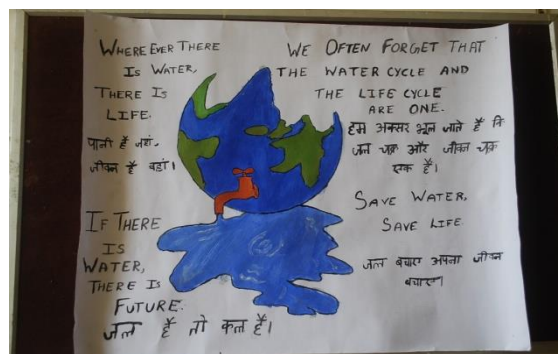 WHERE EVER THERE
IS WATER,
THERE IS
LIFE.
पानी है जहां,
जीवन है वहां।
IF THERE
IS
WATER,
THERE IS
FUTURE.
जल है तो कल है।
WE OFTEN FORGET THAT
THE WATER CYCLE AND
THE LIFE CYCLE
ARE ONE.
हम अक्सर भूल जाते हैं कि
जल चक्र और जीवन चक्र
एक है।
SAVE WATER,
SAVE LIFE
जल बचाए अपना जीवन
बचाए।